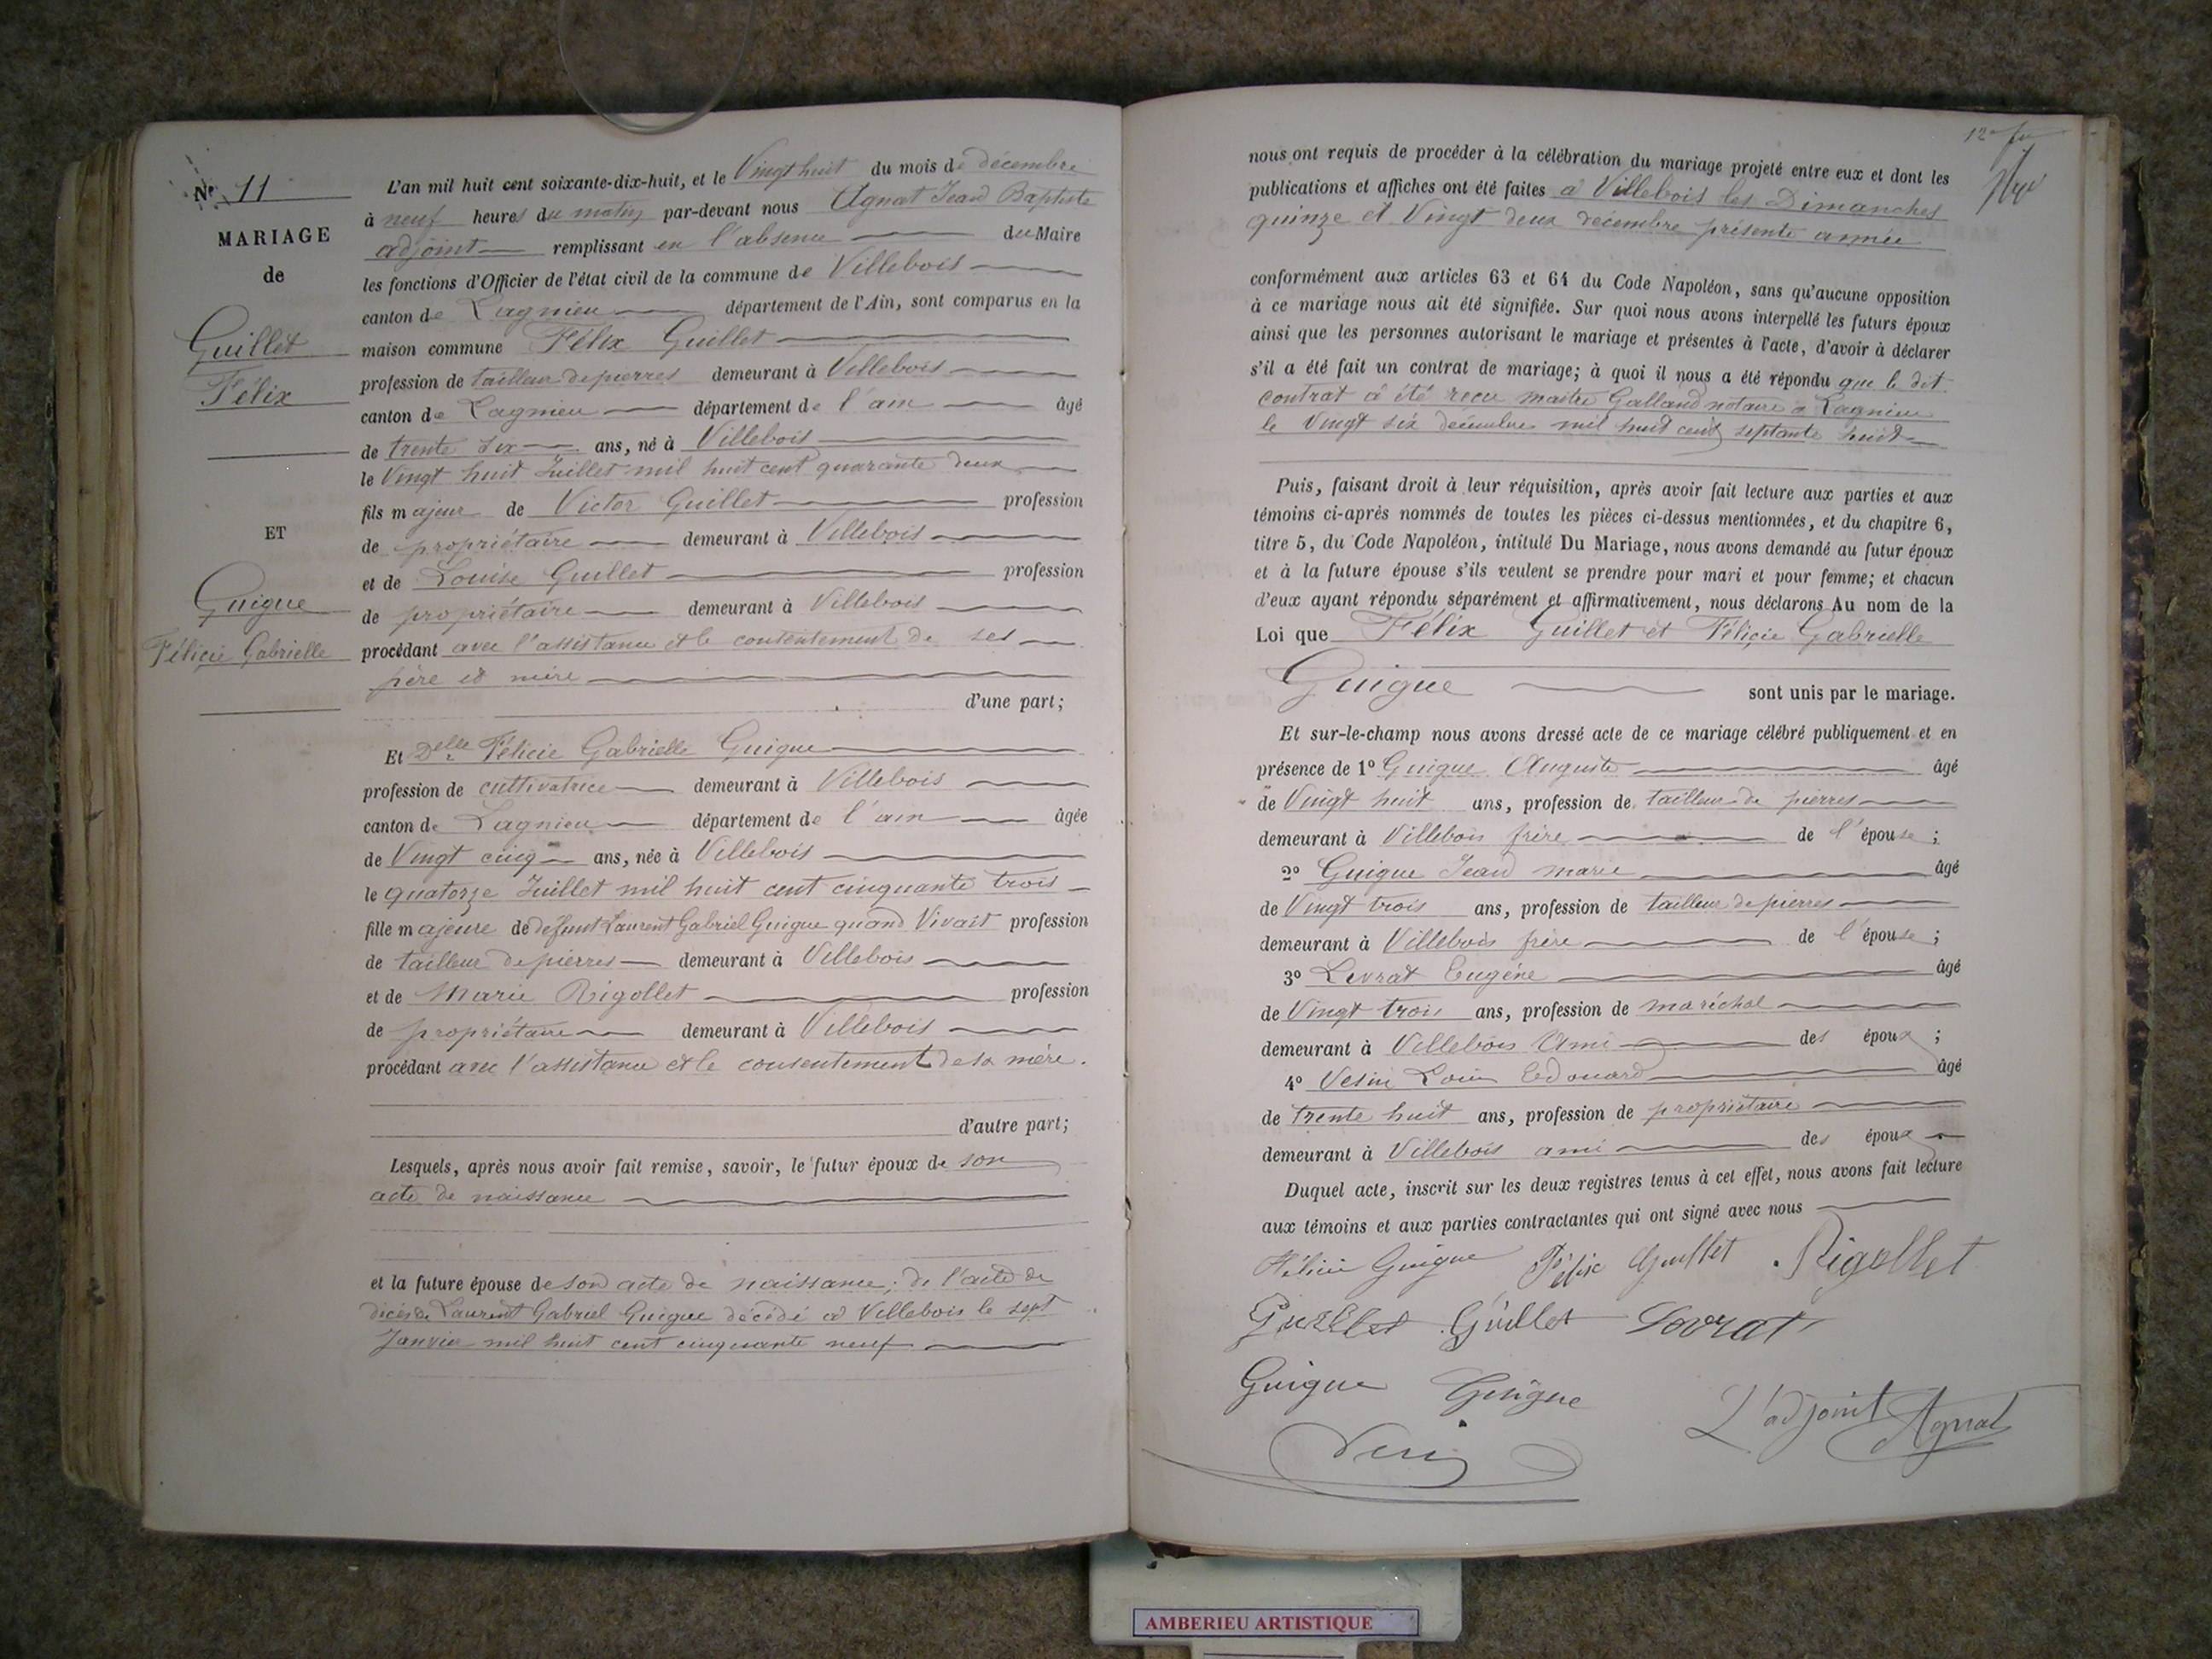 N° 11
MARIAGE
de
Guillet
Félix
ET
Guigue
Félicie Gabrielle
L'an mil huit cent soixante-dix-huit, et le Vingt huit du mois de décembre
à neuf heures du matin par-devant nous Agnat Jean Baptiste
adjoint remplissant en l'absence du Maire
les fonctions d'Officier de l'état civil de la commune de Villebois
canton de Lagnieu département de l'Ain, sont comparus en la
maison commune Félix Guillet
profession de tailleur de pierres demeurant à Villebois
canton de Lagnieu département de l'ain âgé
de trente six ans, né à Villebois
le Vingt huit Juillet mil huit cent quarante deux
fils majeur de Victor Guillet profession
de propriétaire demeurant à Villebois
et de Louise Guillet profession
de propriétaire demeurant à Villebois
procédant avec l'assistance et le contentement de ses
père et mère
d'une part;
Et Delle Félicie Gabrielle Guigue
profession de cultivatrice demeurant à Villebois
canton de Lagnieu département de l'ain âgée
de Vingt cinq ans, née à Villebois
le quatorze Juillet mil huit cent cinquante trois
fille majeure de défunt Laurent Gabriel Guigue quand Vivait profession
de tailleur de pierres demeurant à Villebois
et de Marie Rigollet profession
de propriétaire demeurant à Villebois
procédant avec l'assistance et le consentement de sa mère.
d'autre part;
Lesquels, après nous avoir fait remise, savoir, le futur époux de son
acte de naissance
et la future épouse de son acte de naissance; de l'acte de
décès de Laurent Gabriel Guigue décédé à Villebois le sept
Janvier mil huit cent cinquante neuf
nous ont requis de procéder à la célébration du mariage projeté entre eux et dont les
publications et affiches ont été faites à Villebois les Dimanches
quinze et Vingt deux décembre présente année
conformément aux articles 63 et 64 du Code Napoléon, sans qu'aucune opposition
à ce mariage nous ait été signifiée. Sur quoi nous avons interpellé les futurs époux
ainsi que les personnes autorisant le mariage et présentes à l'acte, d'avoir à déclarer
s'il a été fait un contrat de mariage; à quoi il nous a été répondu que le dit
contrat à été reçu maitre Galland notaire à Lagnieu
le Vingt six décembre mil huit cent septante huit
Puis, faisant droit à leur réquisition, après avoir fait lecture aux parties et aux
témoins ci-après nommés de toutes les pièces ci-dessus mentionnées, et du chapitre 6,
titre 5, du Code Napoléon, intitulé Du Mariage, nous avons demandé au futur époux
et à la future épouse s'ils veulent se prendre pour mari et pour femme; et chacun
d'eux ayant répondu séparément et affirmativement, nous déclarons Au nom de la
Loi que Félix Guillet et Félicie Gabrielle
Guigue sont unis par le mariage.
Et sur-le-champ nous avons dressé acte de ce mariage célébré publiquement et en
présence de 1° Guigue Auguste âgé
de Vingt huit ans, profession de tailleur de pierres
demeurant à Villebois frère de l'épouse;
2° Guigue Jean marie âgé
de Vingt trois ans, profession de tailleur de pierres
demeurant à Villebois frère de l'épouse;
3° Levrat Eugène âgé
de Vingt trois ans, profession de maréchal
demeurant à Villebois Ami des époux;
4° Vesin Louis Edouard âgé
de trente huit ans, profession de propriétaire
demeurant à Villebois ami des époux
Duquel acte, inscrit sur les deux registres tenus à cet effet, nous avons fait lecture
aux témoins et aux parties contractantes qui ont signé avec nous
Félicie Guigue Félix Guillet Rigollet
Guillet Guillet Levrat
Guigue Guigue
L'adjoint Agnat
AMBERIEU ARTISTIQUE